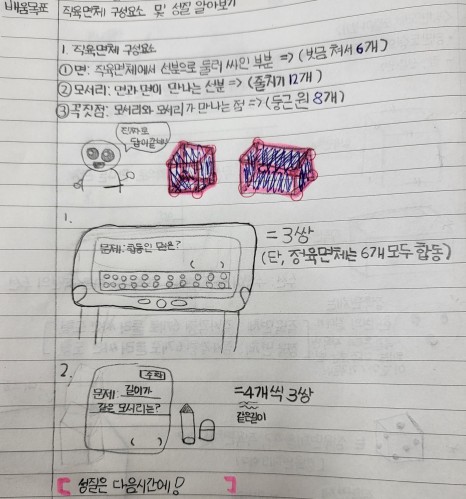 배움목표 직육면체 구성요소 및 성질 알아보기
1. 직육면체 구성요소
① 면: 직육면체에서 선분으로 둘러 싸인 부분 => (빗금 쳐서 6개)
② 모서리: 면과 면이 만나는 선분 => (줄긋기 12개)
③ 꼭짓점: 모서리와 모서리가 만나는 점 => (둥근 원 8개)
1.
문제: 합동인 면은?
( )
= 3쌍
(단, 정육면체는 6개 모두 합동)
2.
문제: 길이가
같은 모서리는?
( )
= 4개씩 3쌍
같은길이
[ 성질은 다음시간에! ]